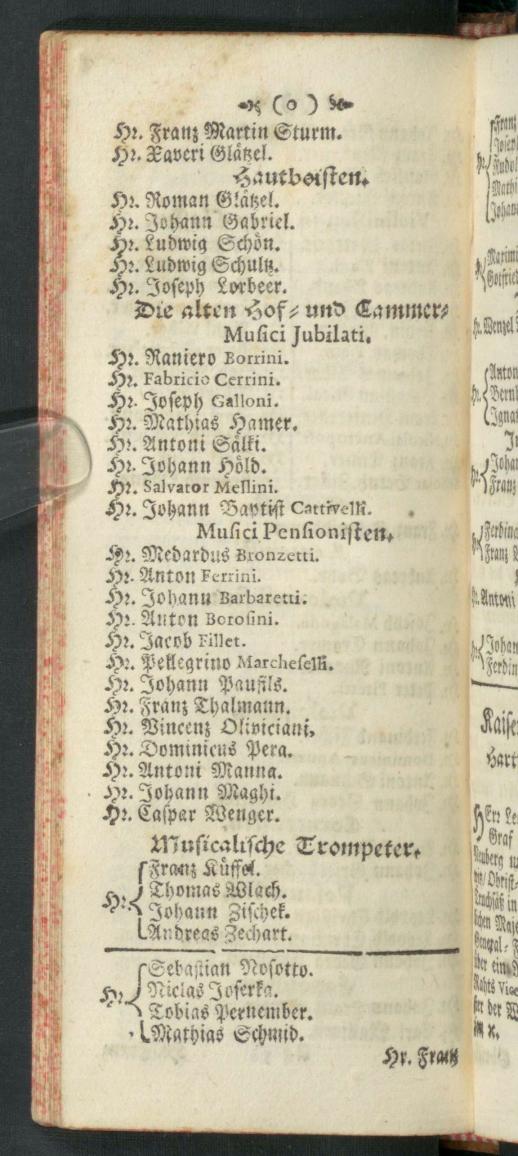 ( o )
Hr. Franz Martin Sturm.
Hr. Xaveri Glätzel.
Hautboisten.
Hr. Roman Glätzel.
Hr. Johann Gabriel.
Hr. Ludwig Schön.
Hr. Ludwig Schultz.
Hr. Joseph Lorbeer.
Die alten Hof- und Cammer-
Musici Jubilati.
Hr. Raniero Borrini.
Hr. Fabricio Cerrini.
Hr. Joseph Galloni.
Hr. Mathias Hamer.
Hr. Antoni Sälki.
Hr. Johann Höld.
Hr. Salvator Mellini.
Hr. Johann Baptist Cattivelli.
Musici Pensionisten.
Hr. Medardus Bronzetti.
Hr. Anton Ferrini.
Hr. Johann Barbaretti.
Hr. Anton Borosini.
Hr. Jacob Fillet.
Hr. Pellegrino Marcheselli.
Hr. Johann Paufils.
Hr. Franz Thalmann.
Hr. Vincenz Oliviciani,
Hr. Dominicus Pera.
Hr. Antoni Manna.
Hr. Johann Maghi.
Hr. Caspar Wenger.
Musicalische Trompeter.
Franz Küffel.
Thomas Wlach.
Hr. Johann Zischek.
Andreas Zechart.
Sebastian Nosotto.
Hr. Niclas Joserka.
Tobias Pernember.
Mathias Schmid.
Hr. Frantz